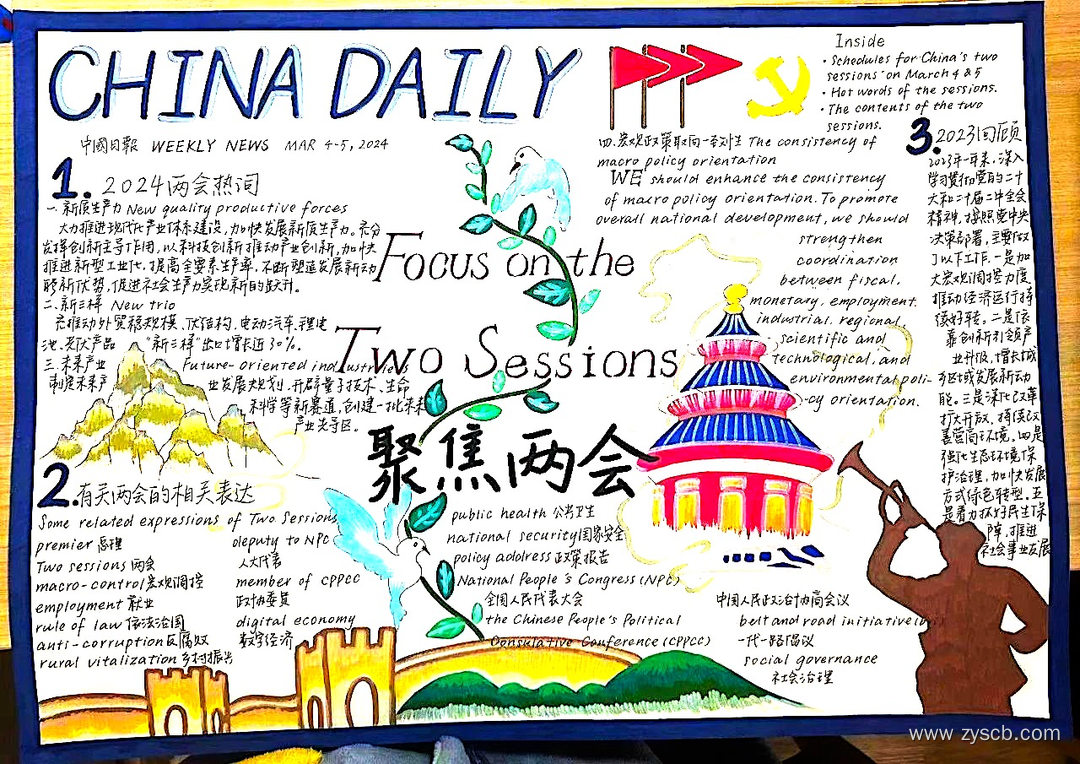 CHINA DAILY
中國日報 WEEKLY NEWS MAR 4-5, 2024
Inside
· Schodules for China's two
sessions on March 4 & 5
· Hot words of the sessions.
· The contents of the two
sessions.
1. 2024两会热词
一. 新质生产力 New quality productive forces
大力推进现代化产业体系建设, 加快发展新质生产力. 充分
发挥创新主导作用, 以科技创新推动产业创新, 加快
推进新型工业化, 提高全要素生产率, 不断塑造发展新动
能新优势, 促进社会生产力实现新的跃升.
二. 新三样 New trio
推动外贸稳规模、优结构, 电动汽车、锂电
池、光伏产品 "新三样"出口增长近30%.
三. 未来产业 Future-oriented industries
制定未来产业发展规划, 开辟量子技术、生命
科学等新赛道, 创建一批未来
产业先导区.
Focus on the
Two Sessions
聚焦两会
四. 宏观政策取向一致性 The consistency of
macro policy orientation
WE should enhance the consistency
of macro policy orientation. To promote
overall national development, we should
strengthen
coordination
between fiscal,
monetary, employment,
industrial, regional,
scientific and
technological, and
environmental poli-
-cy orientation.
3. 2023回顾
2023年一年来, 深入
学习贯彻党的二十
大和二十届二中全会
精神, 按照党中央
决策部署, 主要做
了以下工作. 一是加
大宏观调控力度
推动经济运行持
续好转. 二是依
靠创新引领产
业升级, 增长城
乡区域发展新动
能. 三是深化改革
扩大开放, 持续改
善营商环境, 四是
强化生态环境保
护治理, 加快发展
方式绿色转型. 五
是着力抓好民生保
障, 推进
社会事业发展
2. 有关两会的相关表达
Some related expressions of Two Sessions
premier 总理
Two sessions 两会
macro-control 宏观调控
employment 就业
rule of law 依法治国
anti-corruption 反腐败
rural vitalization 乡村振兴
deputy to NPC
人大代表
member of CPPCC
政协委员
digital economy
数字经济
public health 公共卫生
national security 国家安全
policy address 政策报告
National People's Congress (NPC)
全国人民代表大会
the Chinese People's Political
Consulative Conference (CPPCC)
中国人民政治协商会议
belt and road initiative
一代一路倡议
social governance
社会治理
www.zyscb.com